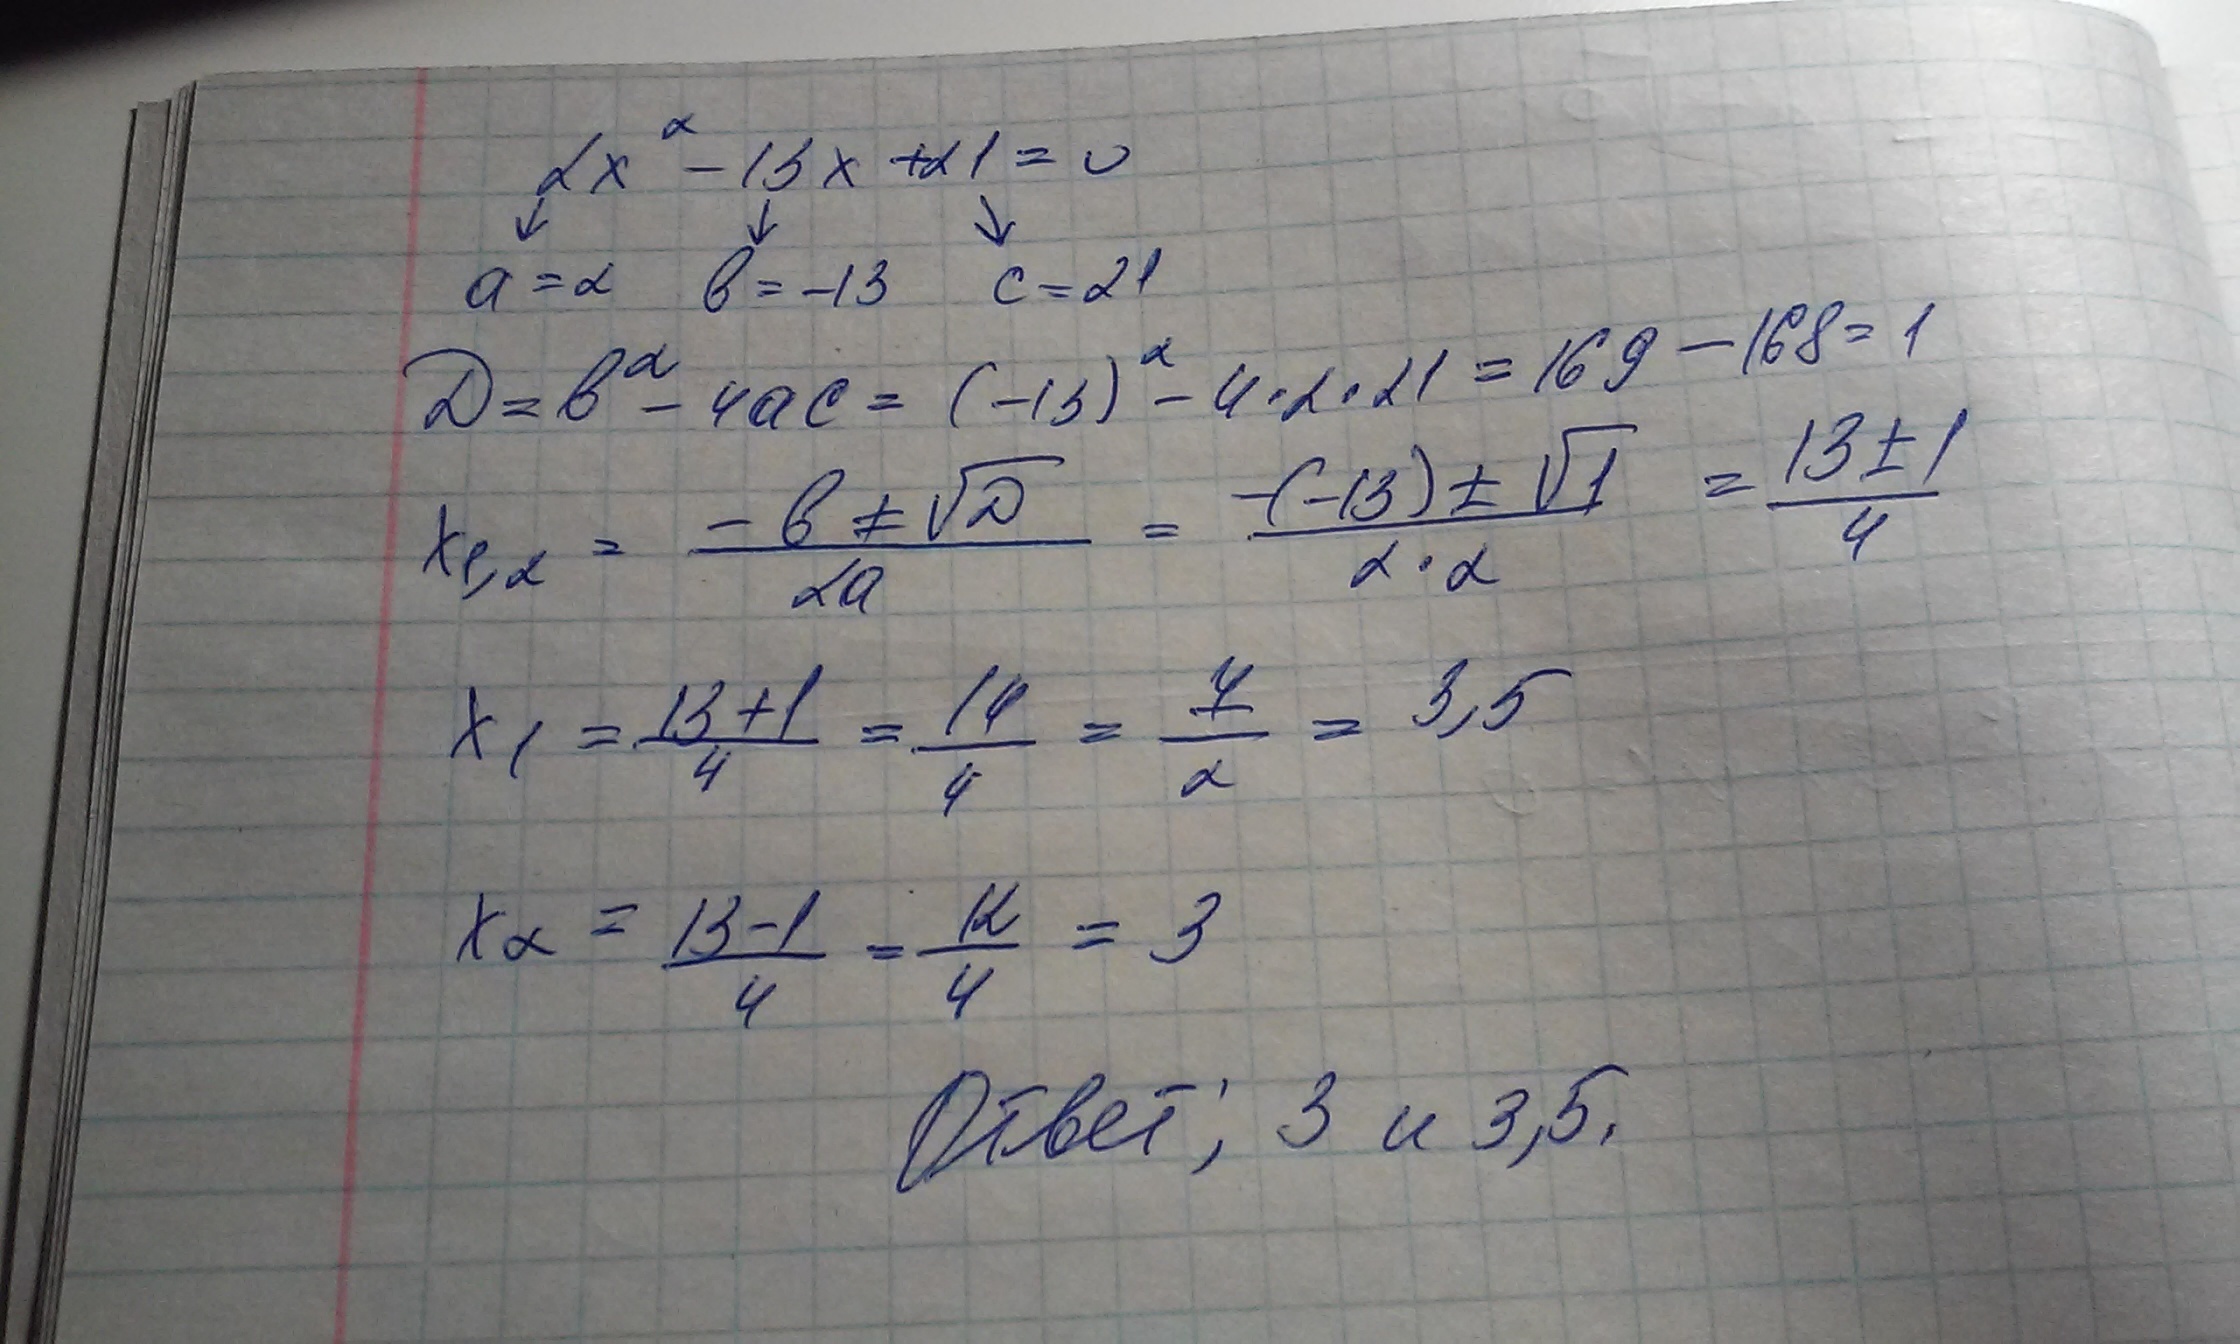 2x² - 13x + 21 = 0
↓ ↓ ↘
a = 2 в = -13 c = 21
D = в² - 4ac = (-13)² - 4·2·21 = 169 - 168 = 1
x₁,₂ = (-в ± √D)/(2a) = (-(-13) ± √1)/(2·2) = (13 ± 1)/4
x₁ = (13+1)/4 = 14/4 = 7/2 = 3,5
x₂ = (13-1)/4 = 12/4 = 3
Ответ; 3 и 3,5.